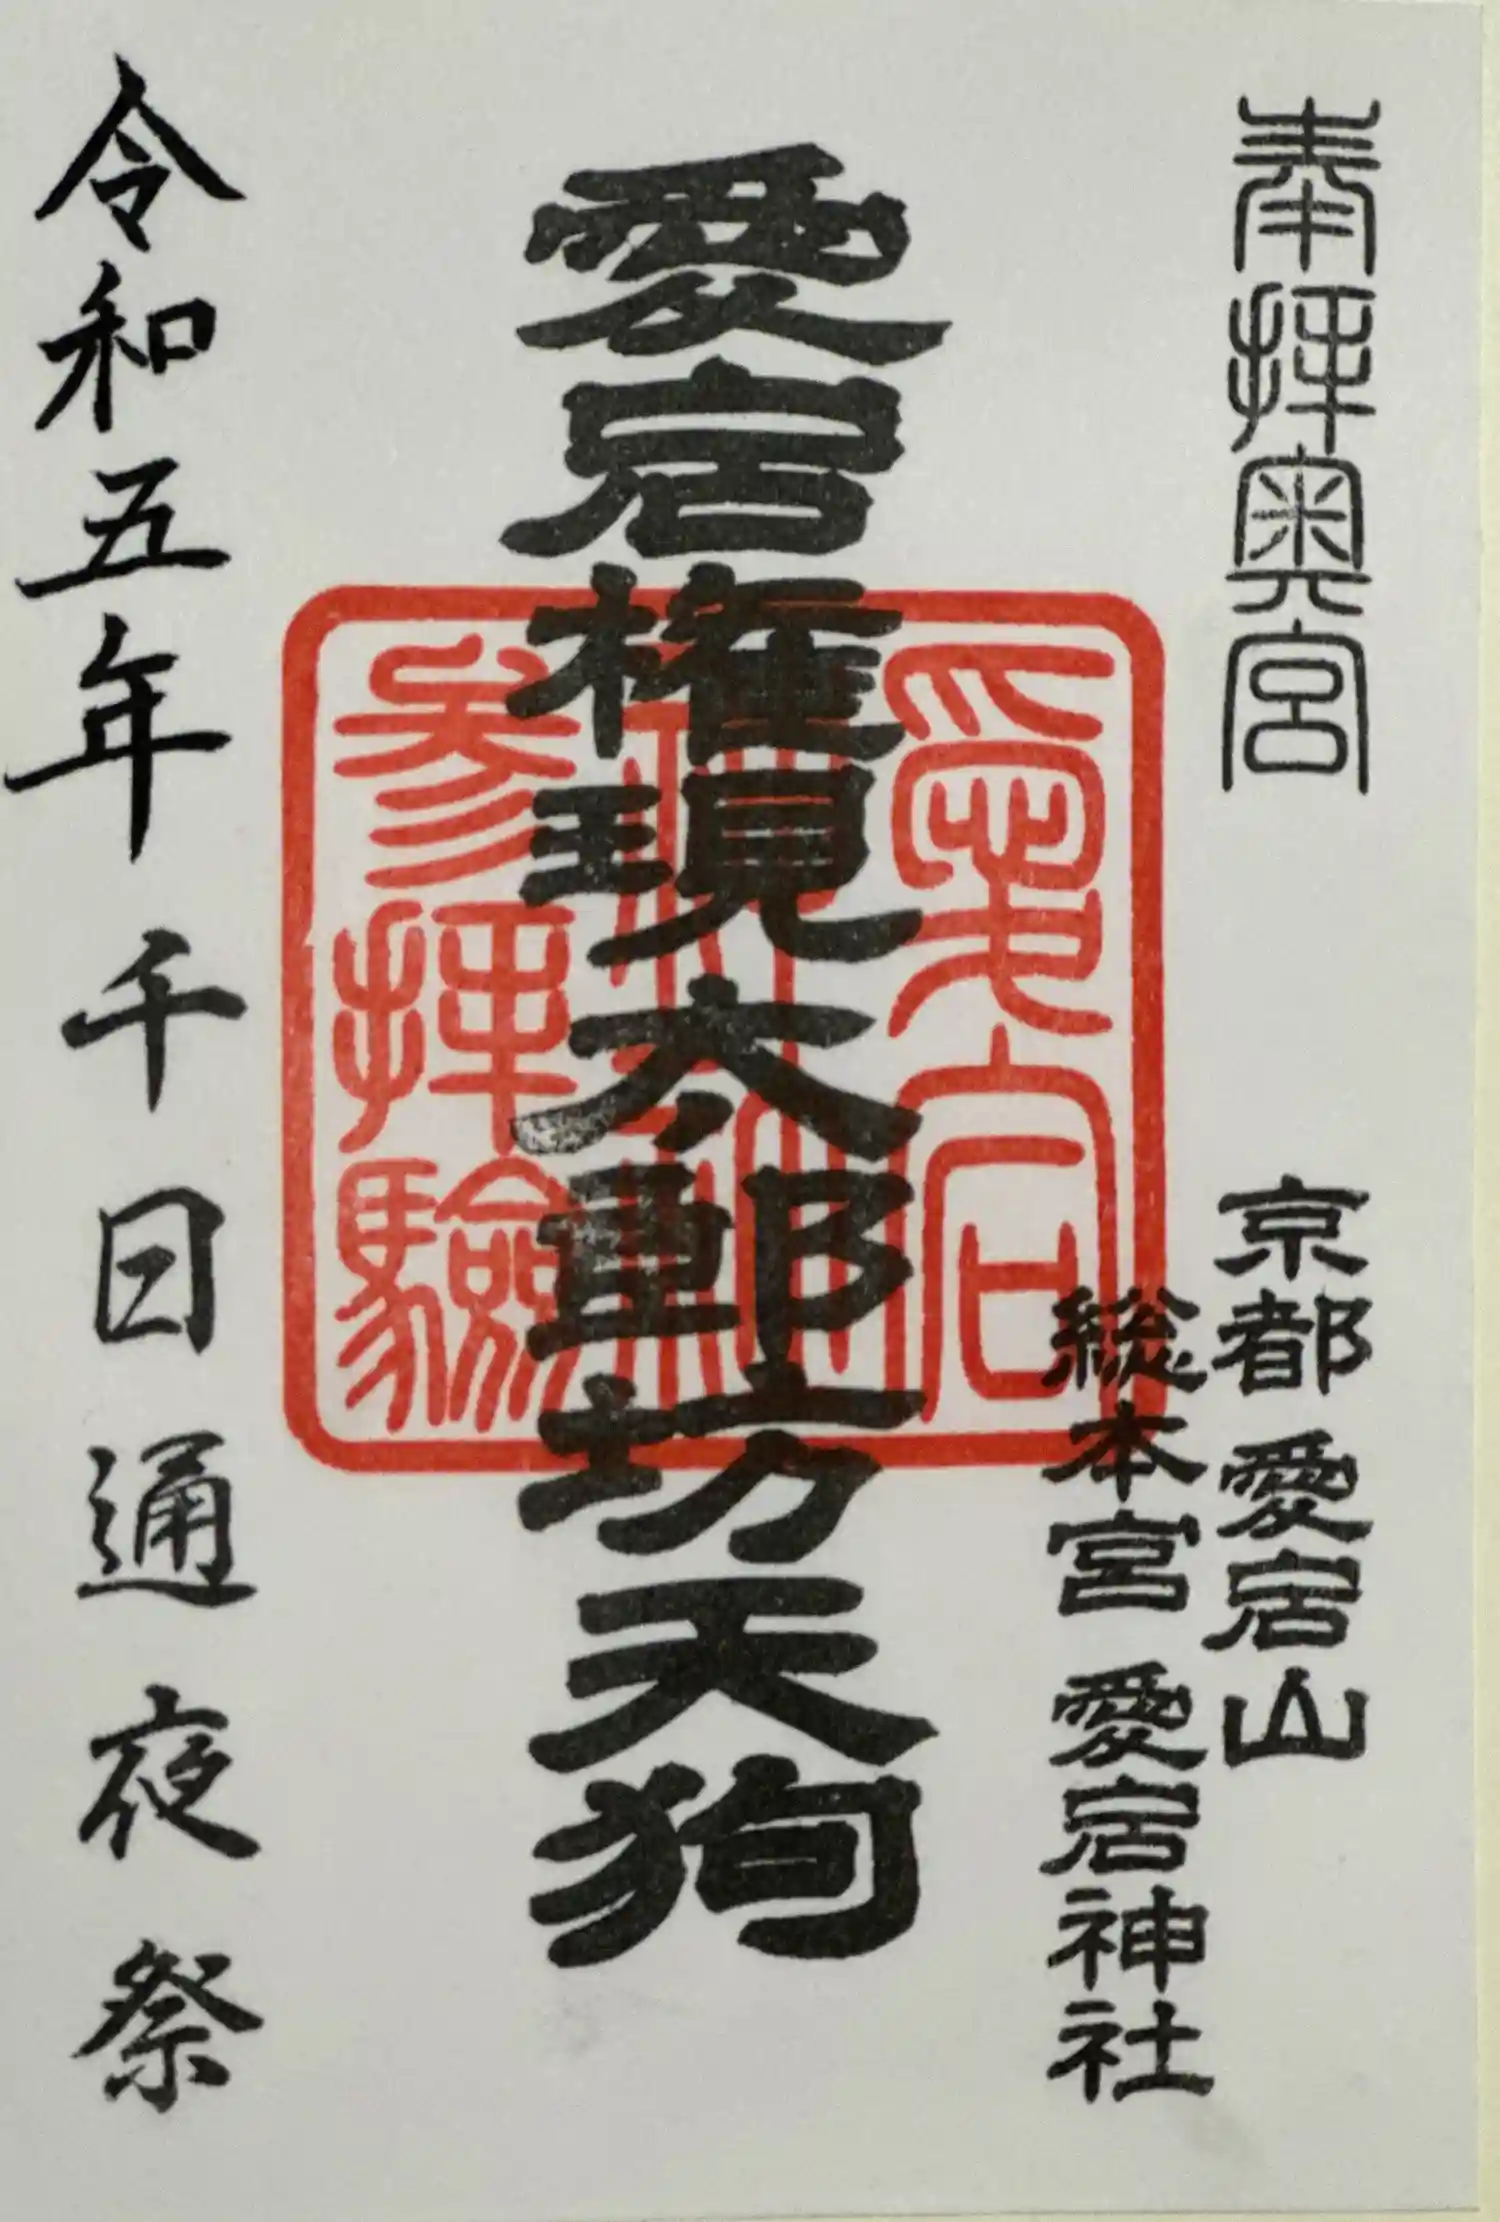 奉拝奥宮
京都 愛宕山
総本宮 愛宕神社
愛宕権現太郎坊天狗
愛宕
参拝驗
令和五年千日通夜祭